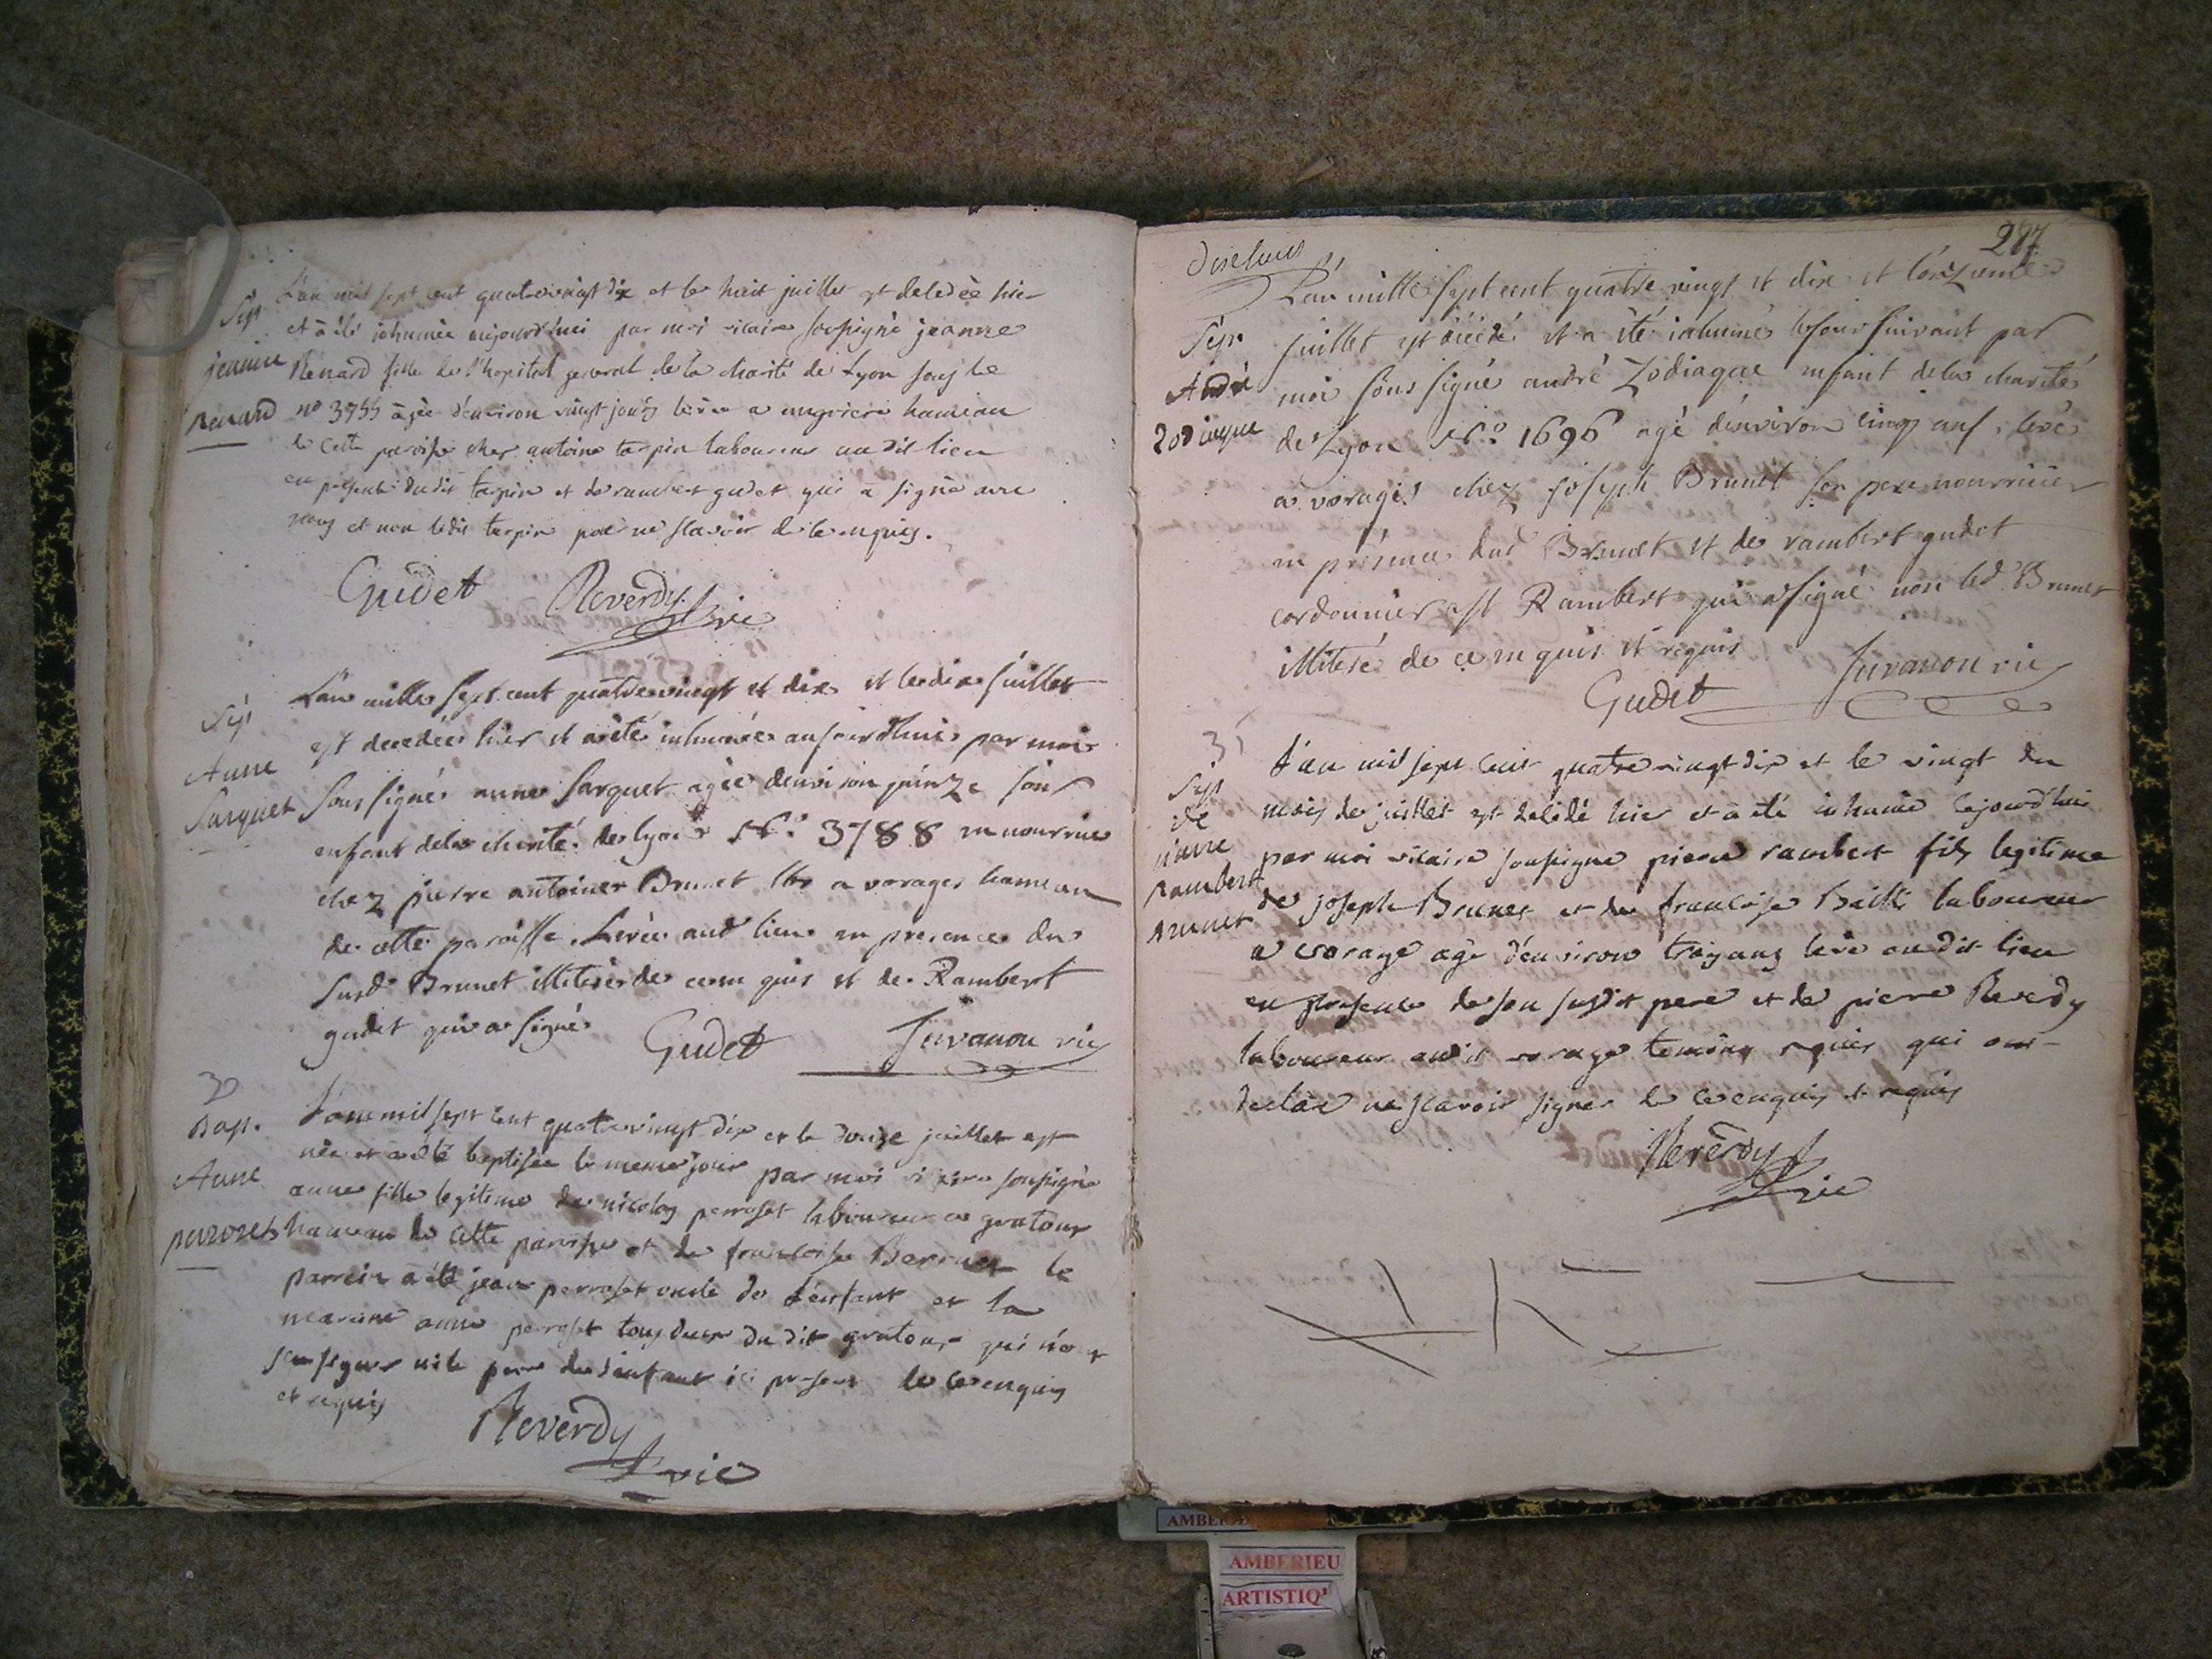 Sep
jeanne
Renard
L'an mil sept cent quatrevingt dix et le huit juillet est decedée hier
et a été inhumée aujourd'hui par moi vicaire soussigné jeanne
Renard fille de l'hopital general de la charité de Lyon sous le
no agée d'environ vingt jours levée a hameau
de cette paroisse chez antoine tarpin laboureur au dit lieu
en presence dudit tarpin et de rambert gudet qui a signé avec
nous et non ledit tarpin pour ne scavoir de ce enquis.
Gudet Reverdy vic
Sep
Anne
Sarquet
L'an mille sept cent quatrevingt et dix et le dix juillet
est decedée hier et a été inhumée aujourdhui par moi
sous signé anne Sarquet agée denviron quinze jours
enfant dela charité de lyon N.o 3788 en nourrice
chez pierre antoine Brunet lbr a vorages hameau
de cette paroisse. Levée aud lieu en presence du
susd Brunet illiteré de ce enquis et de Rambert
gudet qui a signé
Gudet Juvanon vic
30
Bap.
Anne
perroset
L'an mil sept cent quatrevingt dix et le douze juillet est
née et a été baptisée le meme jour par moi vicaire soussigné
anne fille legitime de nicolas perroset laboureur a gratoux
hameau de cette paroisse et de francoise Barruet le
parrein a été jean perroset oncle de l'enfant et la
maraine anne perroset tous deux du dit gratoux qui n'ont
scu signer ni le pere de l'enfant ici present de ce enquis
et requis
Reverdy vic
287
dixhuit
Sep.
André
Zodiaque
L'an mille sept cent quatre vingt et dix et l'onzieme
juillet est décédé et a été inhumé le jour suivant par
moi sous signé andré Zodiaque enfant dela charité
de Lyon N.o 1696 agé d'environ cinq ans, levé
a vorages chez joseph Brunet son pere nourricier
en présence dud Brunet et de rambert gudet
cordonnier a St Rambert qui a signé non led Brunet
illiteré de ce enquis et requis
Gudet Juvanon vic
31
Sep
de
pierre
Rambert
Brunet
L'an mil sept cent quatre vingt dix et le vingt du
mois de juillet est decédé hier et a été inhumé cejourd'hui
par moi vicaire soussigné pierre rambert fils legitime
de joseph Brunet et de francoise Bailli laboureur
a vorage agé d'environ trois ans levé au dit lieu
en presence de son susdit pere et de pierre Reverdy
laboureur audit vorage temoins requis qui ont
declaré ne scavoir signer de ce enquis et requis
Reverdy vic
AMBERIEU
ARTISTIQ'